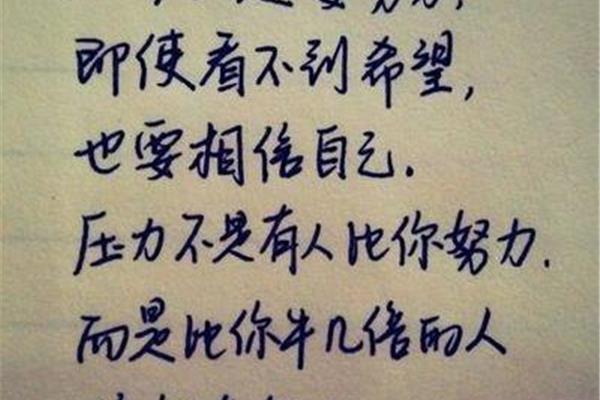 要努力,
即使看不到希望,
也要相信自己.
压力不是有人比你努力.
而是比你牛几倍的人